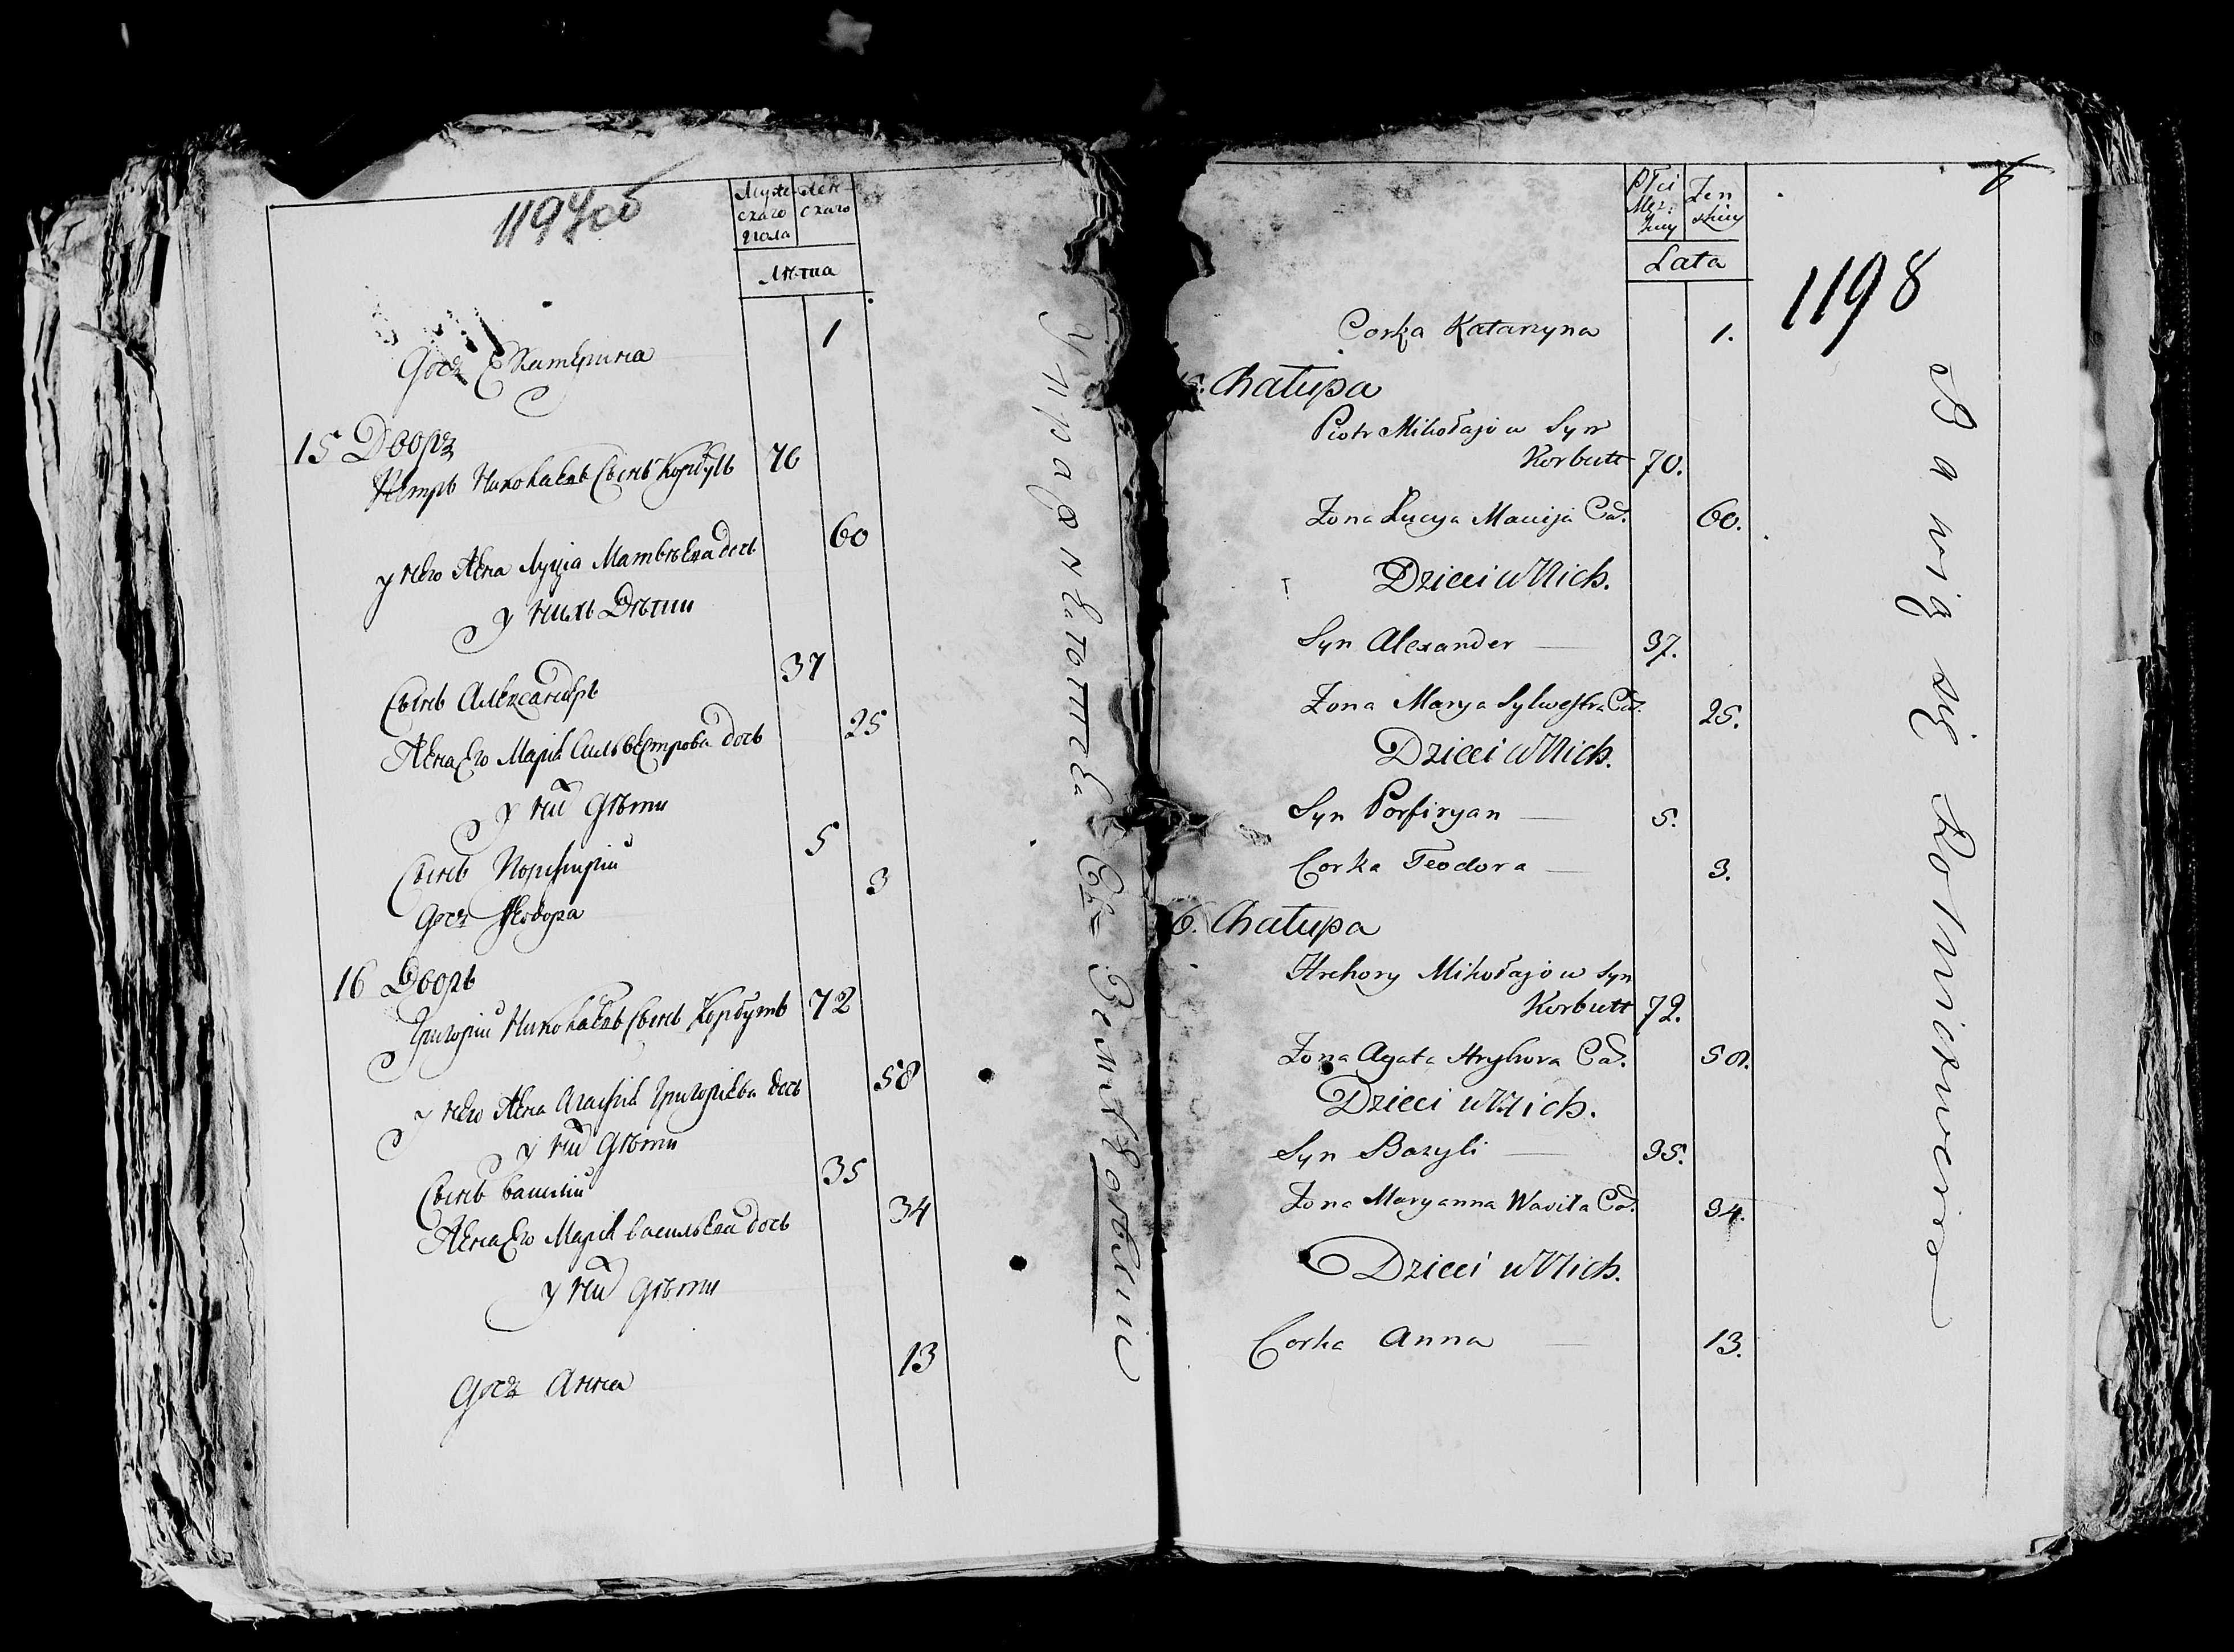 1197об
Муже
скаго
пола
Жен
скаго
Лѣта
Дочь Екатерина 1
15 Дворъ
Петръ Николаевъ Сынъ Корбутъ 70
у него Жена Луціа Матвѣева дочь 60
у нихъ Дѣти
Сынъ Александръ 37
Жена Его Маріа Сильвестрова дочь 25
у них Дѣти
Сынъ Порфирій 5
Дочь Феодора 3
16 Дворъ
Григорій Николаевъ Сынъ Корбутъ 72
у него Жена Агафія Григорьева дочь 58
у них Дѣти
Сынъ Василій 35
Жена Его Маріа Васильева дочь 34
у них Дѣти
Дочь Анна 13
Упражняются въ Земледѣліи
Płci
Męz:
Żen
Lata
1198
Corka Katarzyna 1.
Chałupa
Piotr Mikołajow Syn
Korbutt 70.
Żona Łucya Macieja Cor. 60.
Dzieci w Nich.
Syn Alexander 37.
Żona Marya Sylwestra Cor. 25.
Dzieci w Nich.
Syn Porfiryan 5.
Corka Teodora 3.
6. Chałupa
Hrehory Mikołajow Syn
Korbutt 72.
Żona Agata Hryhora Cor. 58.
Dzieci w Nich.
Syn Bazyli 35.
Żona Maryanna Wasila Cor. 34.
Dzieci w Nich.
Corka Anna 13.
Bawią się Rolnictwem